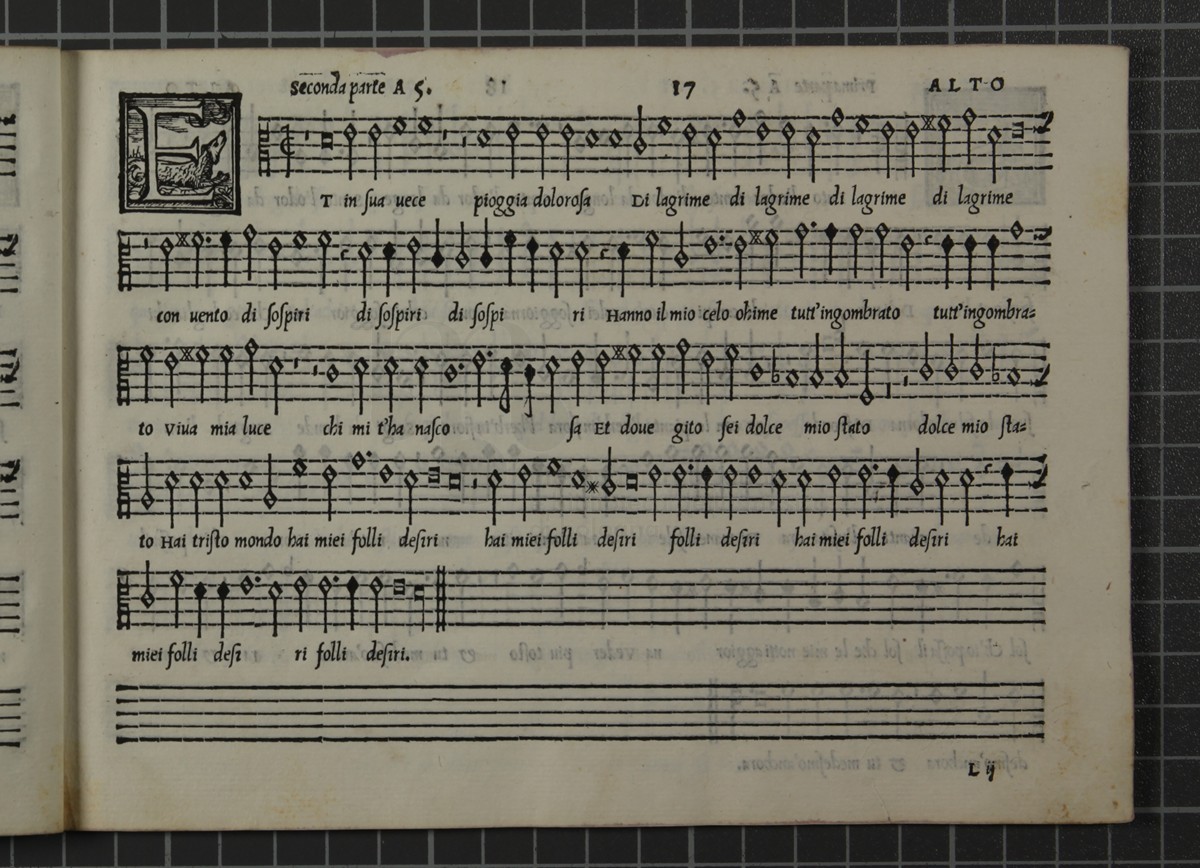 Seconda parte A 5. 17 ALTO
ET in ſua uece pioggia doloroſa Di lagrime di lagrime di lagrime di lagrime
con uento di ſoſpiri di ſoſpiri di ſoſpi ri Hanno il mio celo ohime tutt'ingombrato tutt'ingombra=
to Viua mia luce chi mi t'ha naſco ſa Et doue gito ſei dolce mio ſtato dolce mio ſta=
to Hai triſto mondo hai miei folli deſiri hai miei folli deſiri folli deſiri hai miei folli deſiri hai
miei folli deſi ri folli deſiri.
L ij